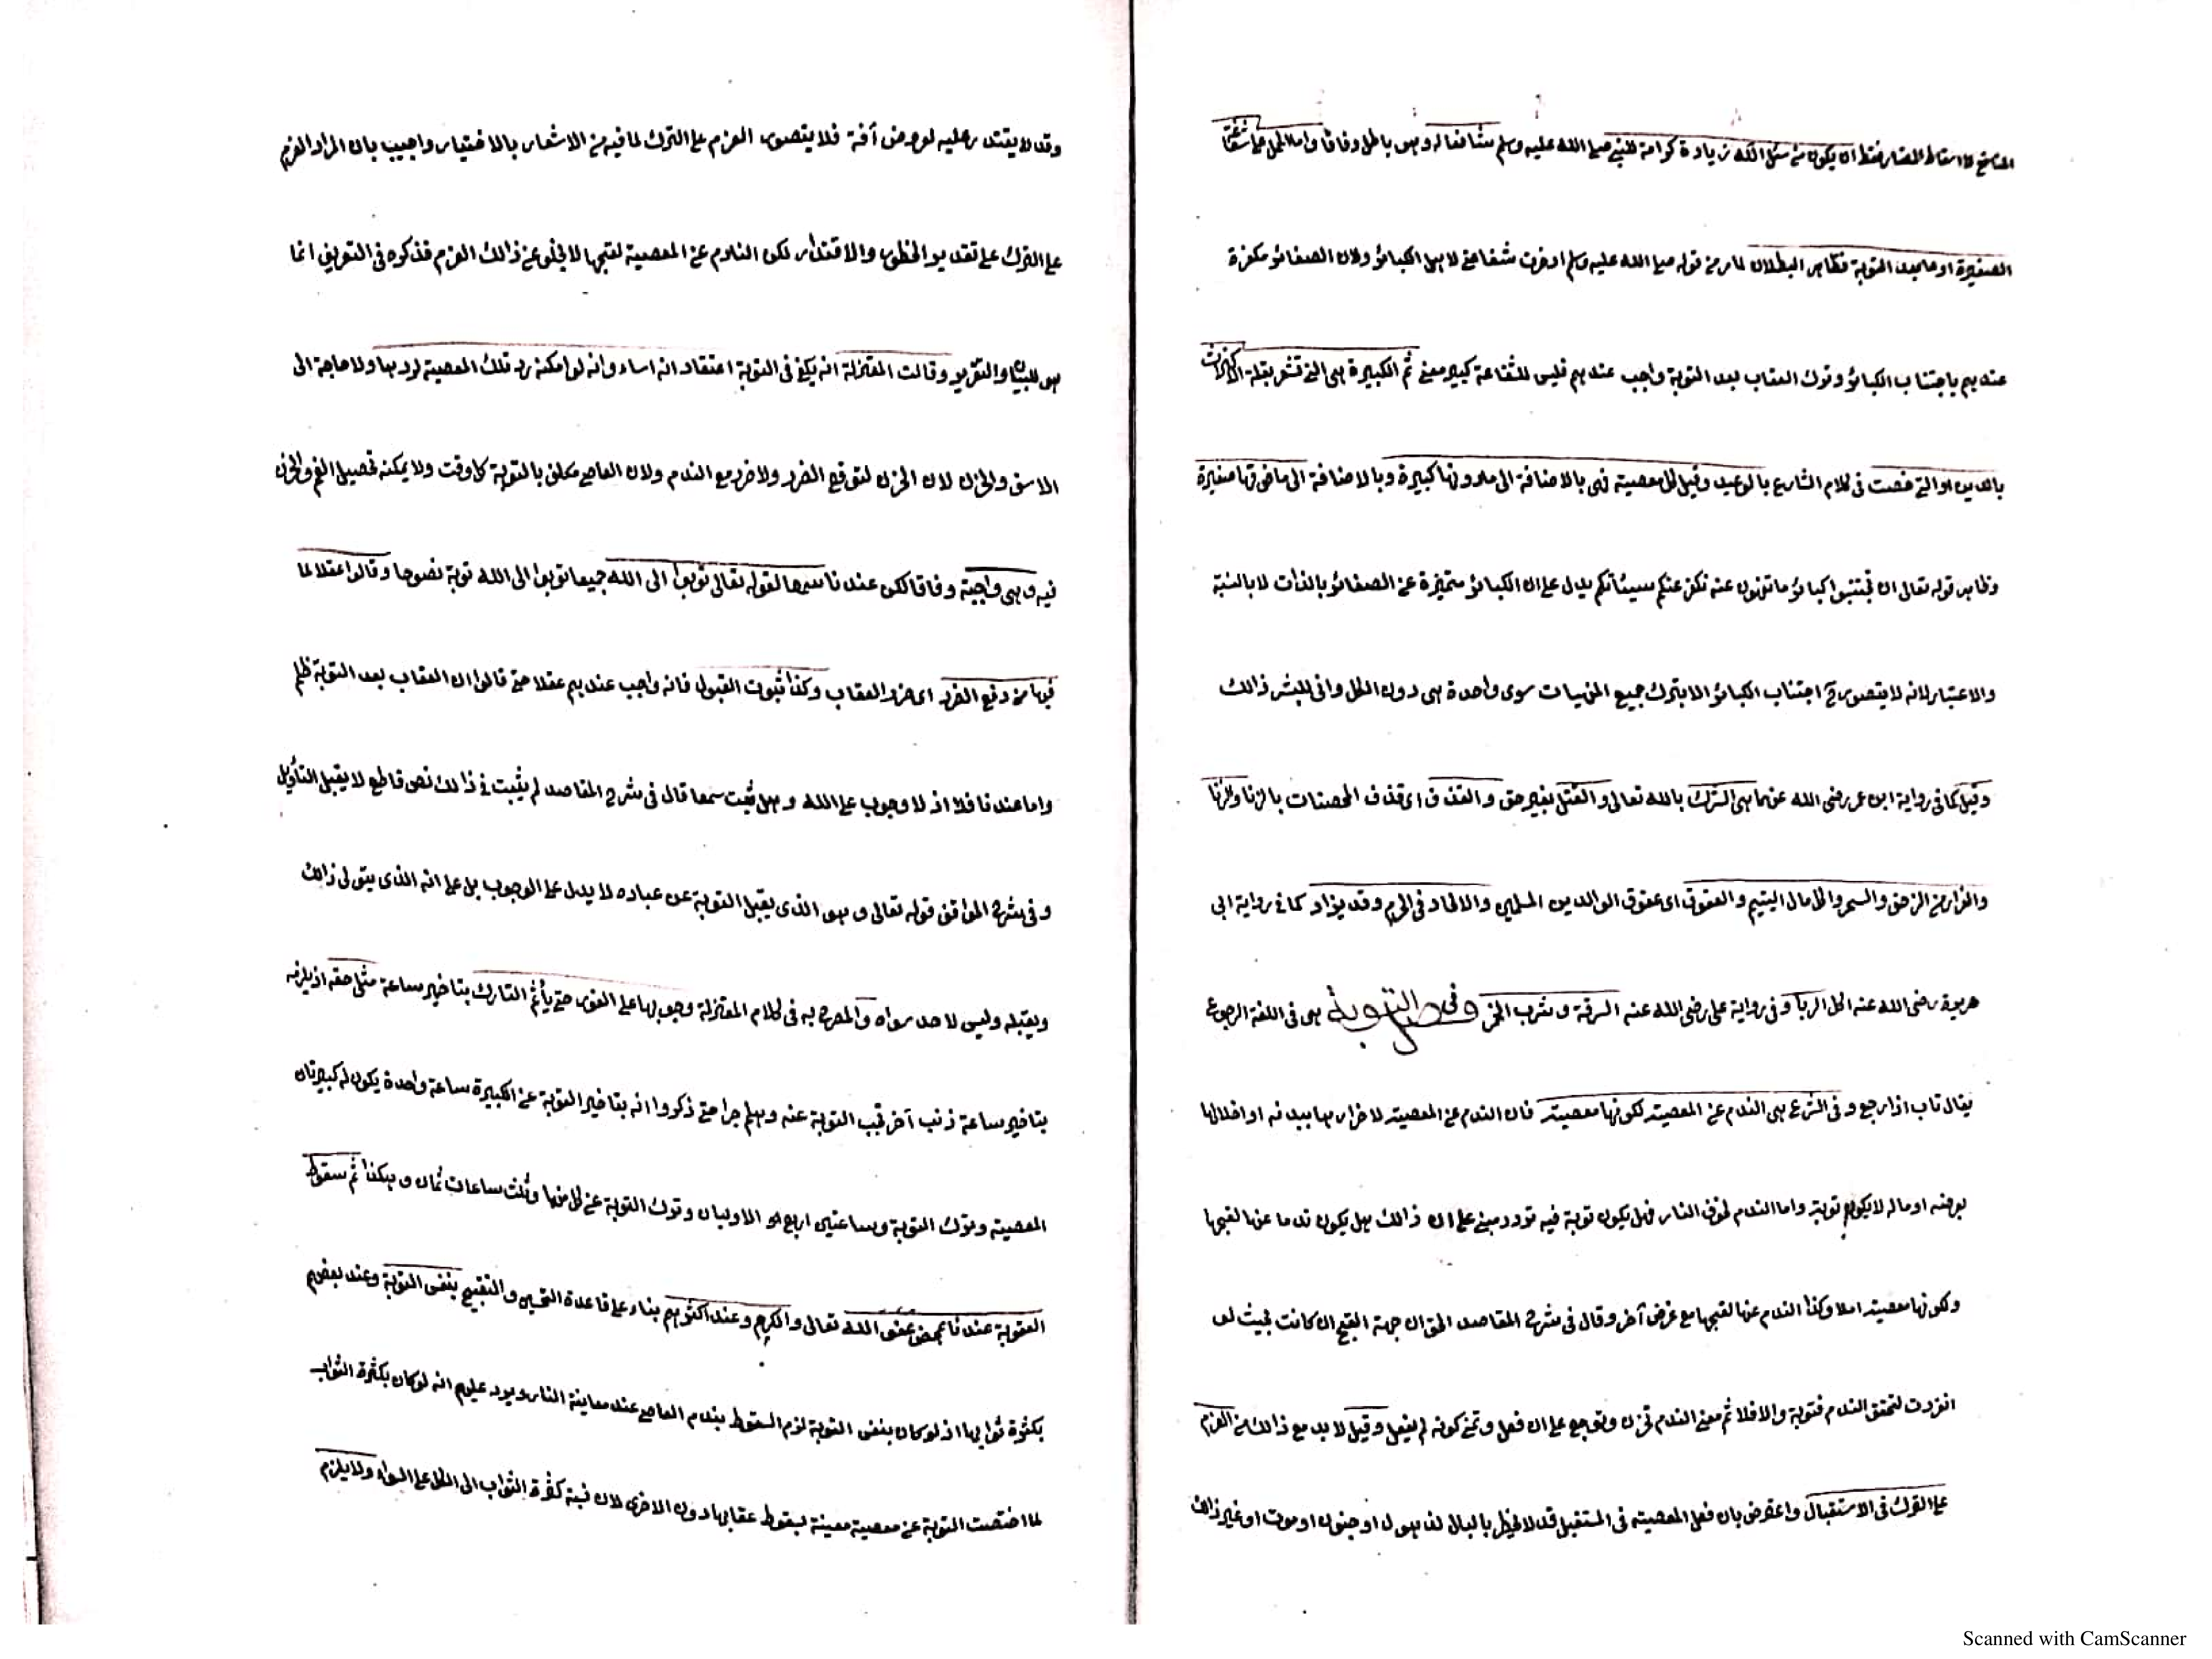 المنافع لا اسقاط المضار فقط ان يكون من سئل الله زيادة كرامة للنبي صلى الله عليه وسلم شافعا له وهو باطل وفاقا واما الحمل على شفاعة
الصغيرة او ما بعد التوبة فظاهر البطلان لما مر من قوله صلى الله عليه وسلم ادخرت شفاعتي لاهل الكبائر ولان الصغائر مكفرة
عندهم باجتناب الكبائر وترك العقاب بعد التوبة واجب عندهم فليس للشفاعة كبير معنى ثم الكبيرة هي التي تشعر بقلة الاكتراث
بالدين او التي خصت في كلام الشارع بالوعيد وقيل كل معصية فهي بالاضافة الى ما دونها كبيرة وبالاضافة الى ما فوقها صغيرة
وظاهر قوله تعالى ان تجتنبوا كبائر ما تنهون عنه نكفر عنكم سيئاتكم يدل على ان الكبائر متميزة عن الصغائر بالذات لا بالنسبة
والاعتبار لانه لا يتصور ح اجتناب الكبائر الا بترك جميع المنهيات سوى واحدة هي دون الكل وانى للبشر ذالك
وقيل كما في رواية ابن عمر رضى الله عنهما هي الشرك بالله تعالى والقتل بغير حق والقذف اى قذف المحصنات بالزنا والزنا
والفرار من الزحف والسحر واكل مال اليتيم والعقوق اى عقوق الوالدين المسلمين والالحاد في الحرم وقد يزاد كما في رواية ابى
هريرة رضى الله عنه اكل الربا وفي رواية على رضى الله عنه السرقة وشرب الخمر وفصل في التوبة هي في اللغة الرجوع
يقال تاب اذا رجع وفي الشرع هي الندم عن المعصية لكونها معصية فان الندم عن المعصية لاضرارها ببدنه او اخلالها
بعرضه او ماله لا يكون توبة واما الندم لخوف النار فهل يكون توبة فيه تردد مبني على ان ذالك هل يكون ندما عنها لقبحها
ولكونها معصية ام لا وكذا الندم عنها لقبحها مع غرض آخر وقال في شرح المقاصد الحق ان جهة القبح ان كانت بحيث لو
انفردت لتحقق الندم فتوبة والا فلا ثم معنى الندم تحزن وتوجع على ان فعل وتمنى كونه لم يفعل وقيل لا بد مع ذالك من العزم
على الترك في الاستقبال واعترض بان فعل المعصية في المستقبل قد لا يخطر بالبال لذهول او جنون او موت او غير ذالك
وقد لا يقتدر عليه لعروض آفة فلا يتصور العزم على الترك لما فيه من الاشعار بالاختيار واجيب بان المراد العزم
على الترك على تقدير الخطور والاقتدار لكن النادم عن المعصية لقبحها لا يخلو عن ذالك العزم فذكره في التعريف انما
هو للبيان والتقرير وقالت المعتزلة انه يكفي في التوبة اعتقاد انه اساء وانه لو امكنه رد تلك المعصية لردها ولا حاجة الى
الاسف والحزن لان الحزن لتوقع الضرر ولا ضرر مع الندم ولان العاصي مكلف بالتوبة كل وقت ولا يمكنه تحصيل الغم والحزن
فيه وهي واجبة وفاقا لكن عندنا سمعا لقوله تعالى توبوا الى الله جميعا توبوا الى الله توبة نصوحا وقالوا عقلا لما
فيها من دفع الضرر اى ضرر العقاب وكذا ثبوت القبول فانه واجب عندهم عقلا حتى قالوا ان العقاب بعد التوبة ظلم
واما عندنا فلا اذ لا وجوب على الله وهل ثبت سمعا قال في شرح المقاصد لم يثبت في ذالك نص قاطع لا يقبل التأويل
وفي شرح المواقف قوله تعالى وهو الذى يقبل التوبة عن عباده لا يدل على الوجوب بل على انه الذى يتولى ذالك
ويقبله وليس لاحد سواه والمصرح به في كلام المعتزلة وجوبها على الفور حتى يأثم التارك بتاخير ساعة مثل حقه اذ يلزمه
بتاخير ساعة ذنب آخر تجب التوبة عنه وهلم جرا حتى ذكروا انه بتاخير التوبة عن الكبيرة ساعة واحدة يكون له كبيرتان
المعصية وترك التوبة وساعتين اربع هو الاوليان وترك التوبة عن كل منها وثلث ساعات ثمان وهكذا ثم سقوط
العقوبة عندنا بمحض عفو الله تعالى والكرم وعند اكثرهم بناء على قاعدة التحسين والتقبيح بنفس التوبة وعند بعضهم
بكثرة ثوابها اذ لو كان بنفس التوبة لزم السقوط بندم العاصي عند معاينة النار ويرد عليهم انه لو كان بكثرة الثواب
لما اختصت التوبة عن معصية معينة بسقوط عقابها دون الاخرى لان نسبة كثرة الثواب الى الكل على السواء ولا يلزم
Scanned with CamScanner